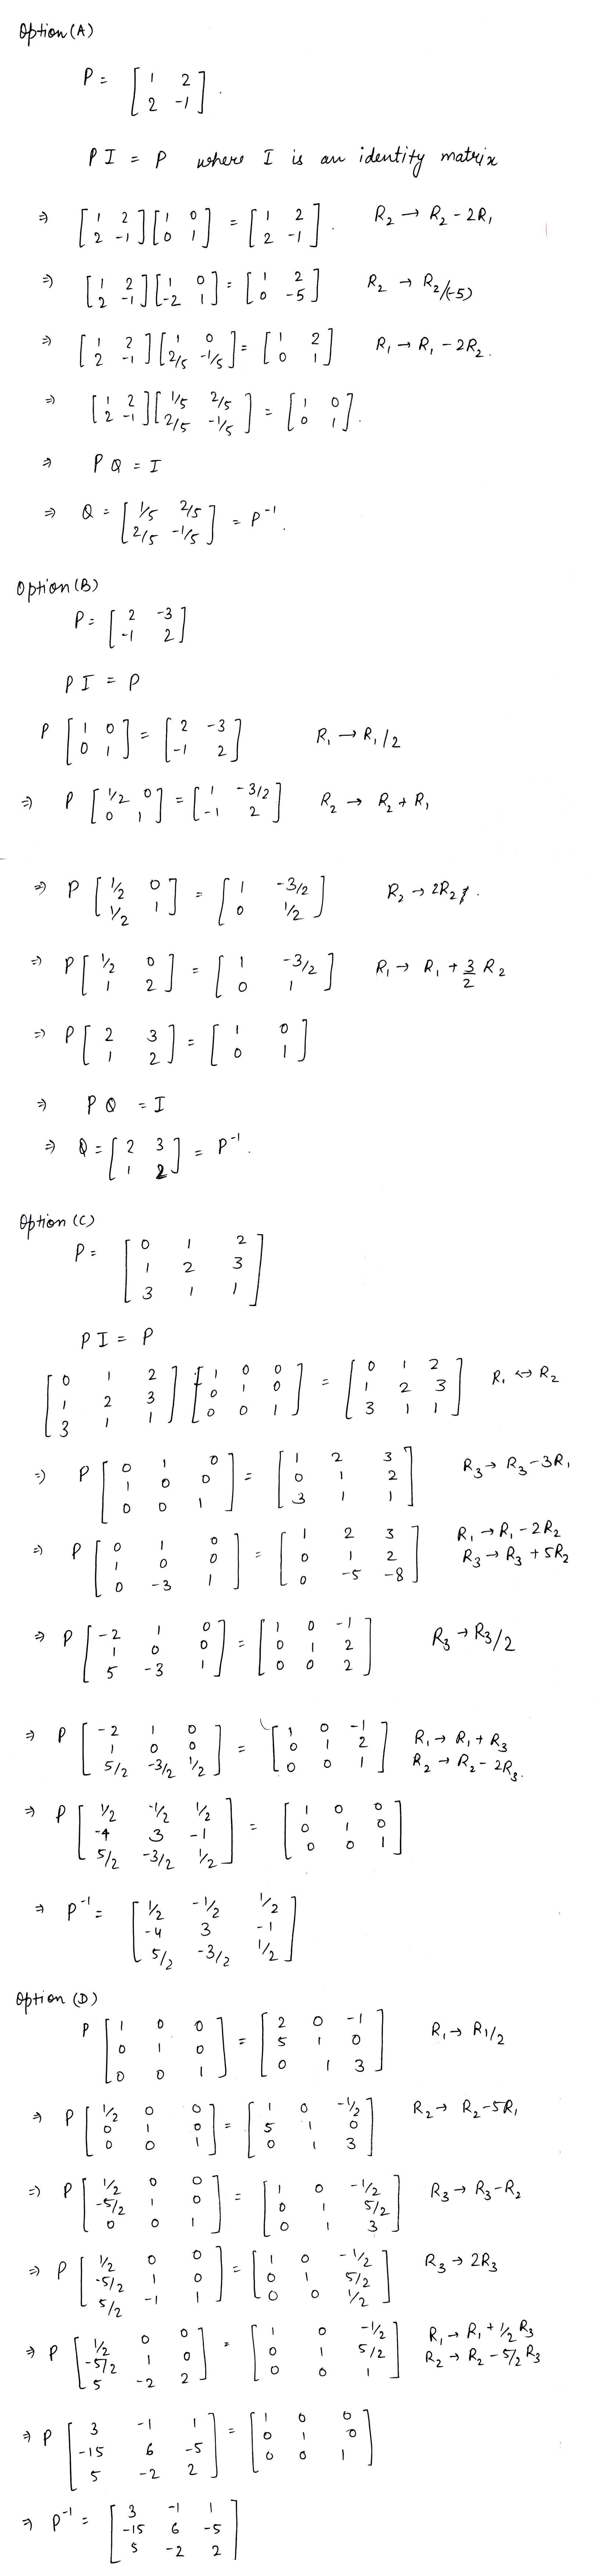 Option (A)
P = [ 1 2
2 -1 ].
P I = P where I is an identity matrix
⇒ [ 1 2 ; 2 -1 ] [ 1 0 ; 0 1 ] = [ 1 2 ; 2 -1 ]. R₂ → R₂ - 2R₁
⇒ [ 1 2 ; 2 -1 ] [ 1 0 ; -2 1 ] = [ 1 2 ; 0 -5 ] R₂ → R₂/(-5)
⇒ [ 1 2 ; 2 -1 ] [ 1 0 ; 2/5 -1/5 ] = [ 1 2 ; 0 1 ] R₁ → R₁ - 2R₂.
⇒ [ 1 2 ; 2 -1 ] [ 1/5 2/5 ; 2/5 -1/5 ] = [ 1 0 ; 0 1 ].
⇒ P Q = I
⇒ Q = [ 1/5 2/5 ; 2/5 -1/5 ] = P⁻¹.
Option (B)
P = [ 2 -3 ; -1 2 ]
P I = P
P [ 1 0 ; 0 1 ] = [ 2 -3 ; -1 2 ] R₁ → R₁/2
⇒ P [ 1/2 0 ; 0 1 ] = [ 1 -3/2 ; -1 2 ] R₂ → R₂ + R₁
⇒ P [ 1/2 0 ; 1/2 1 ] = [ 1 -3/2 ; 0 1/2 ] R₂ → 2R₂.
⇒ P [ 1/2 0 ; 1 2 ] = [ 1 -3/2 ; 0 1 ] R₁ → R₁ + 3/2 R₂
⇒ P [ 2 3 ; 1 2 ] = [ 1 0 ; 0 1 ]
⇒ P Q = I
⇒ Q = [ 2 3 ; 1 2 ] = P⁻¹.
Option (C)
P = [ 0 1 2 ; 1 2 3 ; 3 1 1 ]
P I = P
[ 0 1 2 ; 1 2 3 ; 3 1 1 ] [ 1 0 0 ; 0 1 0 ; 0 0 1 ] = [ 0 1 2 ; 1 2 3 ; 3 1 1 ] R₁ ↔ R₂
⇒ P [ 0 1 0 ; 1 0 0 ; 0 0 1 ] = [ 1 2 3 ; 0 1 2 ; 3 1 1 ] R₃ → R₃ - 3R₁
⇒ P [ 0 1 0 ; 1 0 0 ; 0 -3 1 ] = [ 1 2 3 ; 0 1 2 ; 0 -5 -8 ] R₁ → R₁ - 2R₂
R₃ → R₃ + 5R₂
⇒ P [ -2 1 0 ; 1 0 0 ; 5 -3 1 ] = [ 1 0 -1 ; 0 1 2 ; 0 0 2 ] R₃ → R₃/2
⇒ P [ -2 1 0 ; 1 0 0 ; 5/2 -3/2 1/2 ] = [ 1 0 -1 ; 0 1 2 ; 0 0 1 ] R₁ → R₁ + R₃
R₂ → R₂ - 2R₃.
⇒ P [ 1/2 -1/2 1/2 ; -4 3 -1 ; 5/2 -3/2 1/2 ] = [ 1 0 0 ; 0 1 0 ; 0 0 1 ]
⇒ P⁻¹ = [ 1/2 -1/2 1/2 ; -4 3 -1 ; 5/2 -3/2 1/2 ]
Option (D)
P [ 1 0 0 ; 0 1 0 ; 0 0 1 ] = [ 2 0 -1 ; 5 1 0 ; 0 1 3 ] R₁ → R₁/2
⇒ P [ 1/2 0 0 ; 0 1 0 ; 0 0 1 ] = [ 1 0 -1/2 ; 5 1 0 ; 0 1 3 ] R₂ → R₂ - 5R₁
⇒ P [ 1/2 0 0 ; -5/2 1 0 ; 0 0 1 ] = [ 1 0 -1/2 ; 0 1 5/2 ; 0 1 3 ] R₃ → R₃ - R₂
⇒ P [ 1/2 0 0 ; -5/2 1 0 ; 5/2 -1 1 ] = [ 1 0 -1/2 ; 0 1 5/2 ; 0 0 1/2 ] R₃ → 2R₃
⇒ P [ 1/2 0 0 ; -5/2 1 0 ; 5 -2 2 ] = [ 1 0 -1/2 ; 0 1 5/2 ; 0 0 1 ] R₁ → R₁ + 1/2 R₃
R₂ → R₂ - 5/2 R₃
⇒ P [ 3 -1 1 ; -15 6 -5 ; 5 -2 2 ] = [ 1 0 0 ; 0 1 0 ; 0 0 1 ]
⇒ P⁻¹ = [ 3 -1 1 ; -15 6 -5 ; 5 -2 2 ]